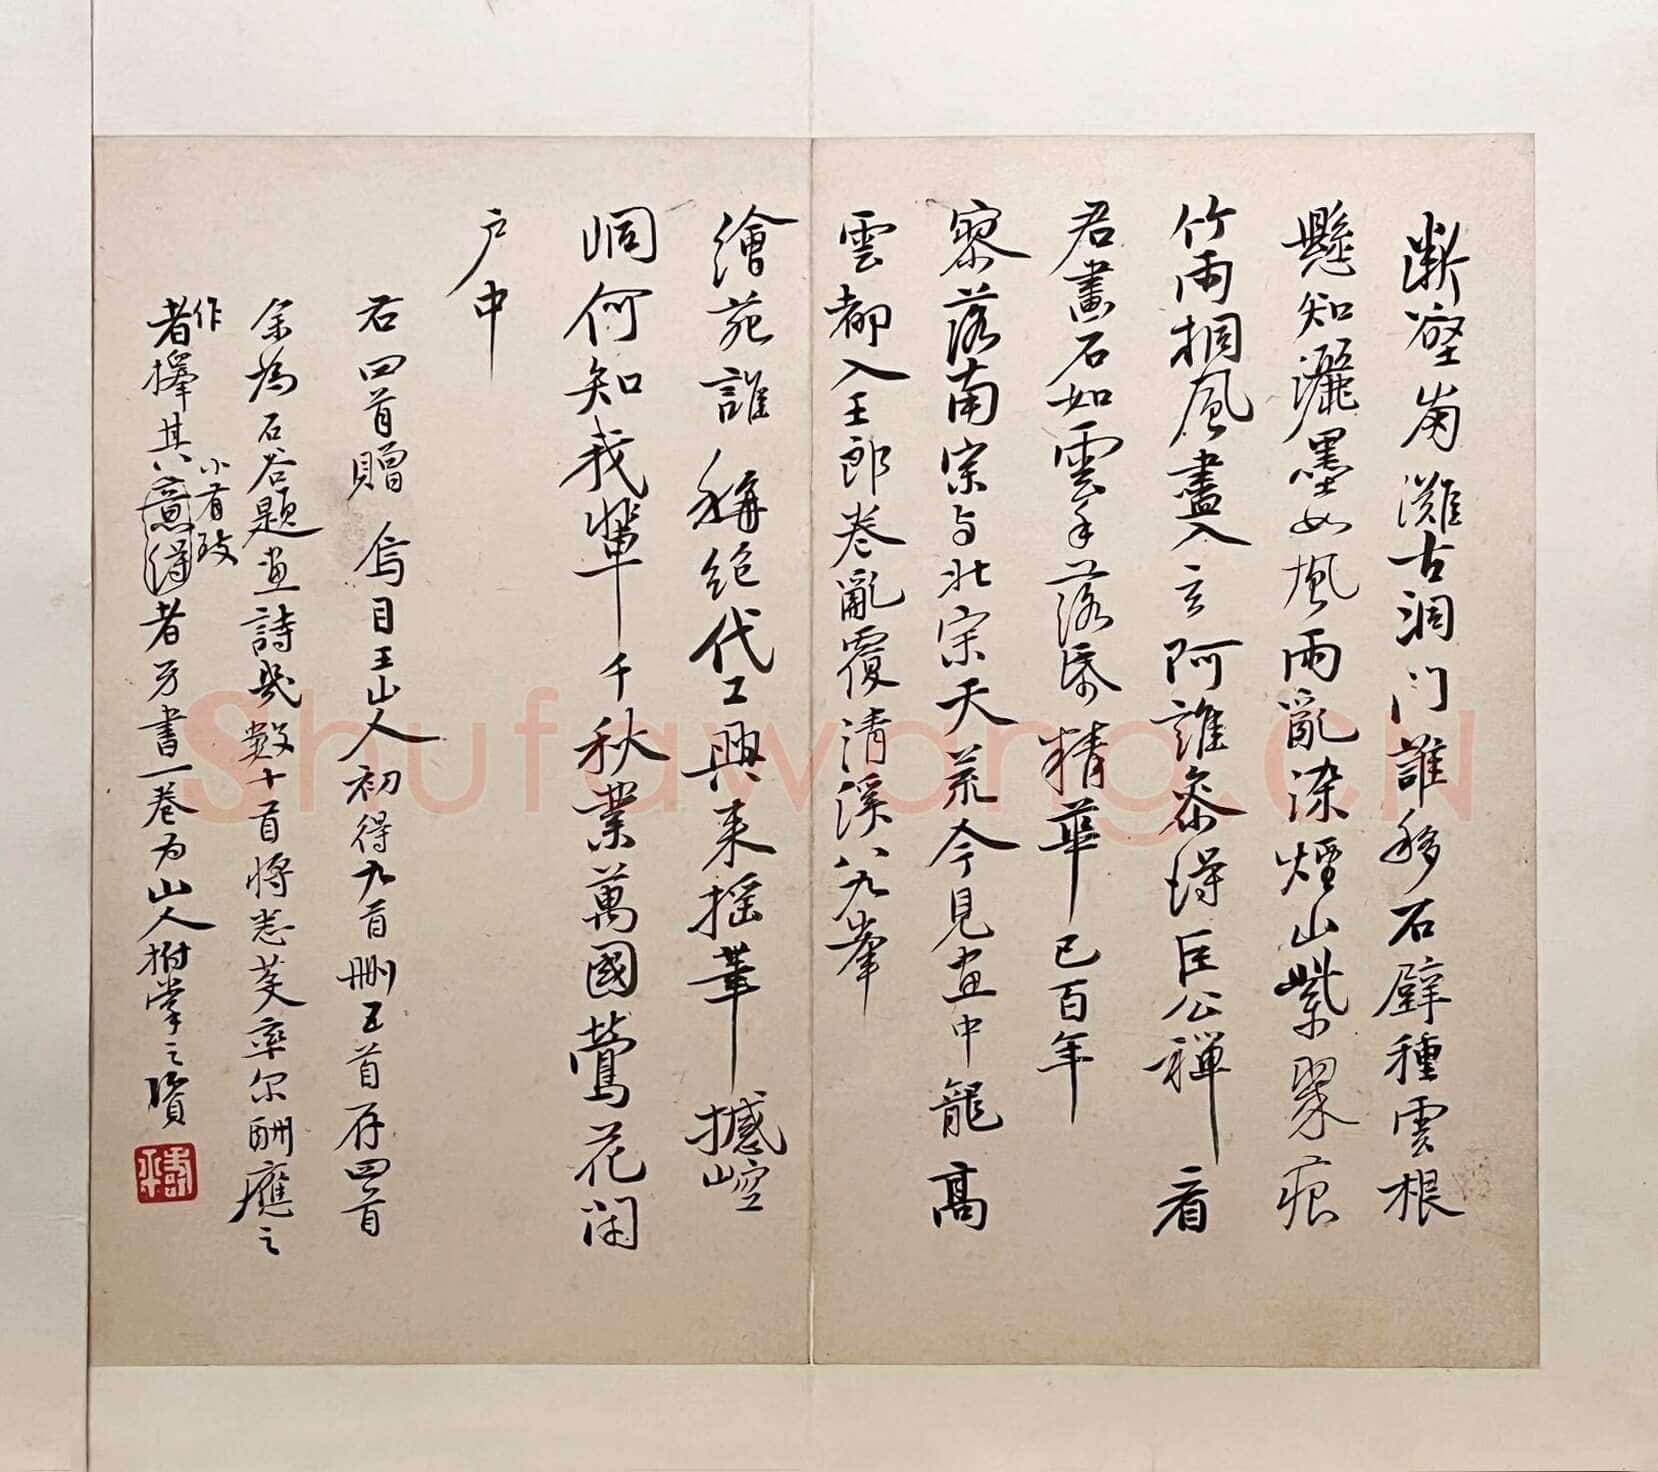 斷壑崩灘古洞門誰移石壁種雲根
懸知灑墨如風雨亂染煙山紫翠痕
竹雨桐風盡入玄阿誰參得巨公禪看
君畫石如雲手落紙精華已百年
寥落南宗與北宗天荒今見畫中龍高
雲都入王郎卷亂覆清溪八九峯
繪苑誰稱絕代工興來搖筆撼崆
峒何知我輩千秋業萬國鶯花閉
户中
右四首贈烏目王山人初得九首刪五首存四首
余為石谷題畫詩幾數十首將悉芟率尔酬應之
作
者擇其意得者另書一卷为山人拊掌之資
小有致
壽平
Shufawang.CN